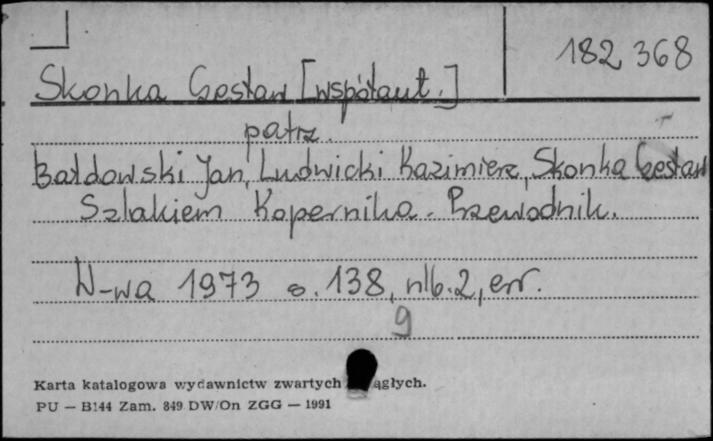 182 368
Skonka Czesław [współaut.]
patrz.
Bałdowski Jan, Ludwicki Kazimierz, Skonka Czesław
Szlakiem Kopernika. Przewodnik.
W-wa 1973 s. 138, nlb. 2, err.
9
Karta katalogowa wydawnictw zwartych ągłych.
PU — B144 Zam. 849 DW/On ZGG — 1991